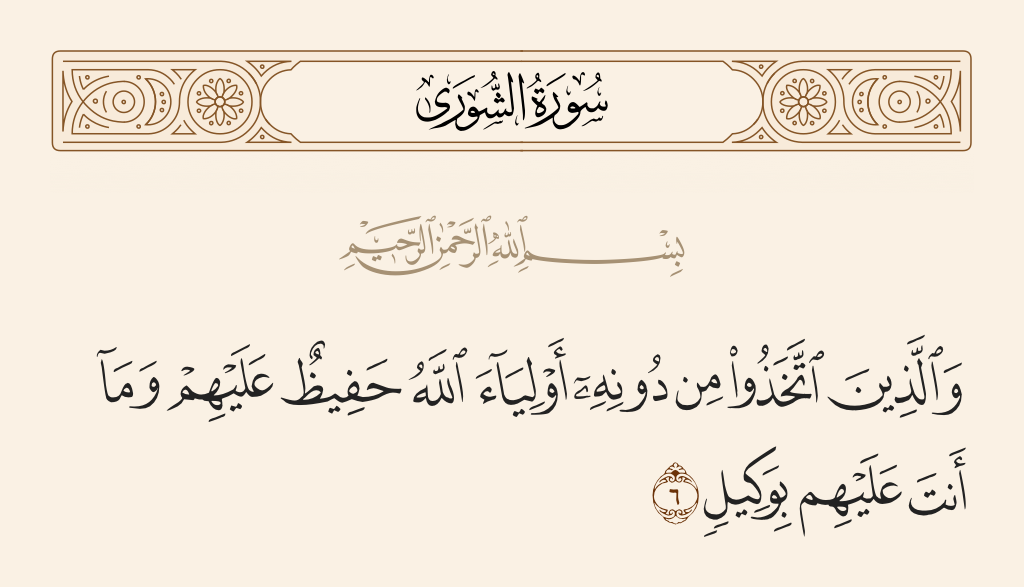 سُورَةُ الشُّورَىٰ
بِسْمِ ٱللَّهِ ٱلرَّحْمَٰنِ ٱلرَّحِيمِ
وَٱلَّذِينَ ٱتَّخَذُوا۟ مِن دُونِهِۦٓ أَوْلِيَآءَ ٱللَّهُ حَفِيظٌ عَلَيْهِمْ وَمَآ
أَنتَ عَلَيْهِم بِوَكِيلٍ ٦